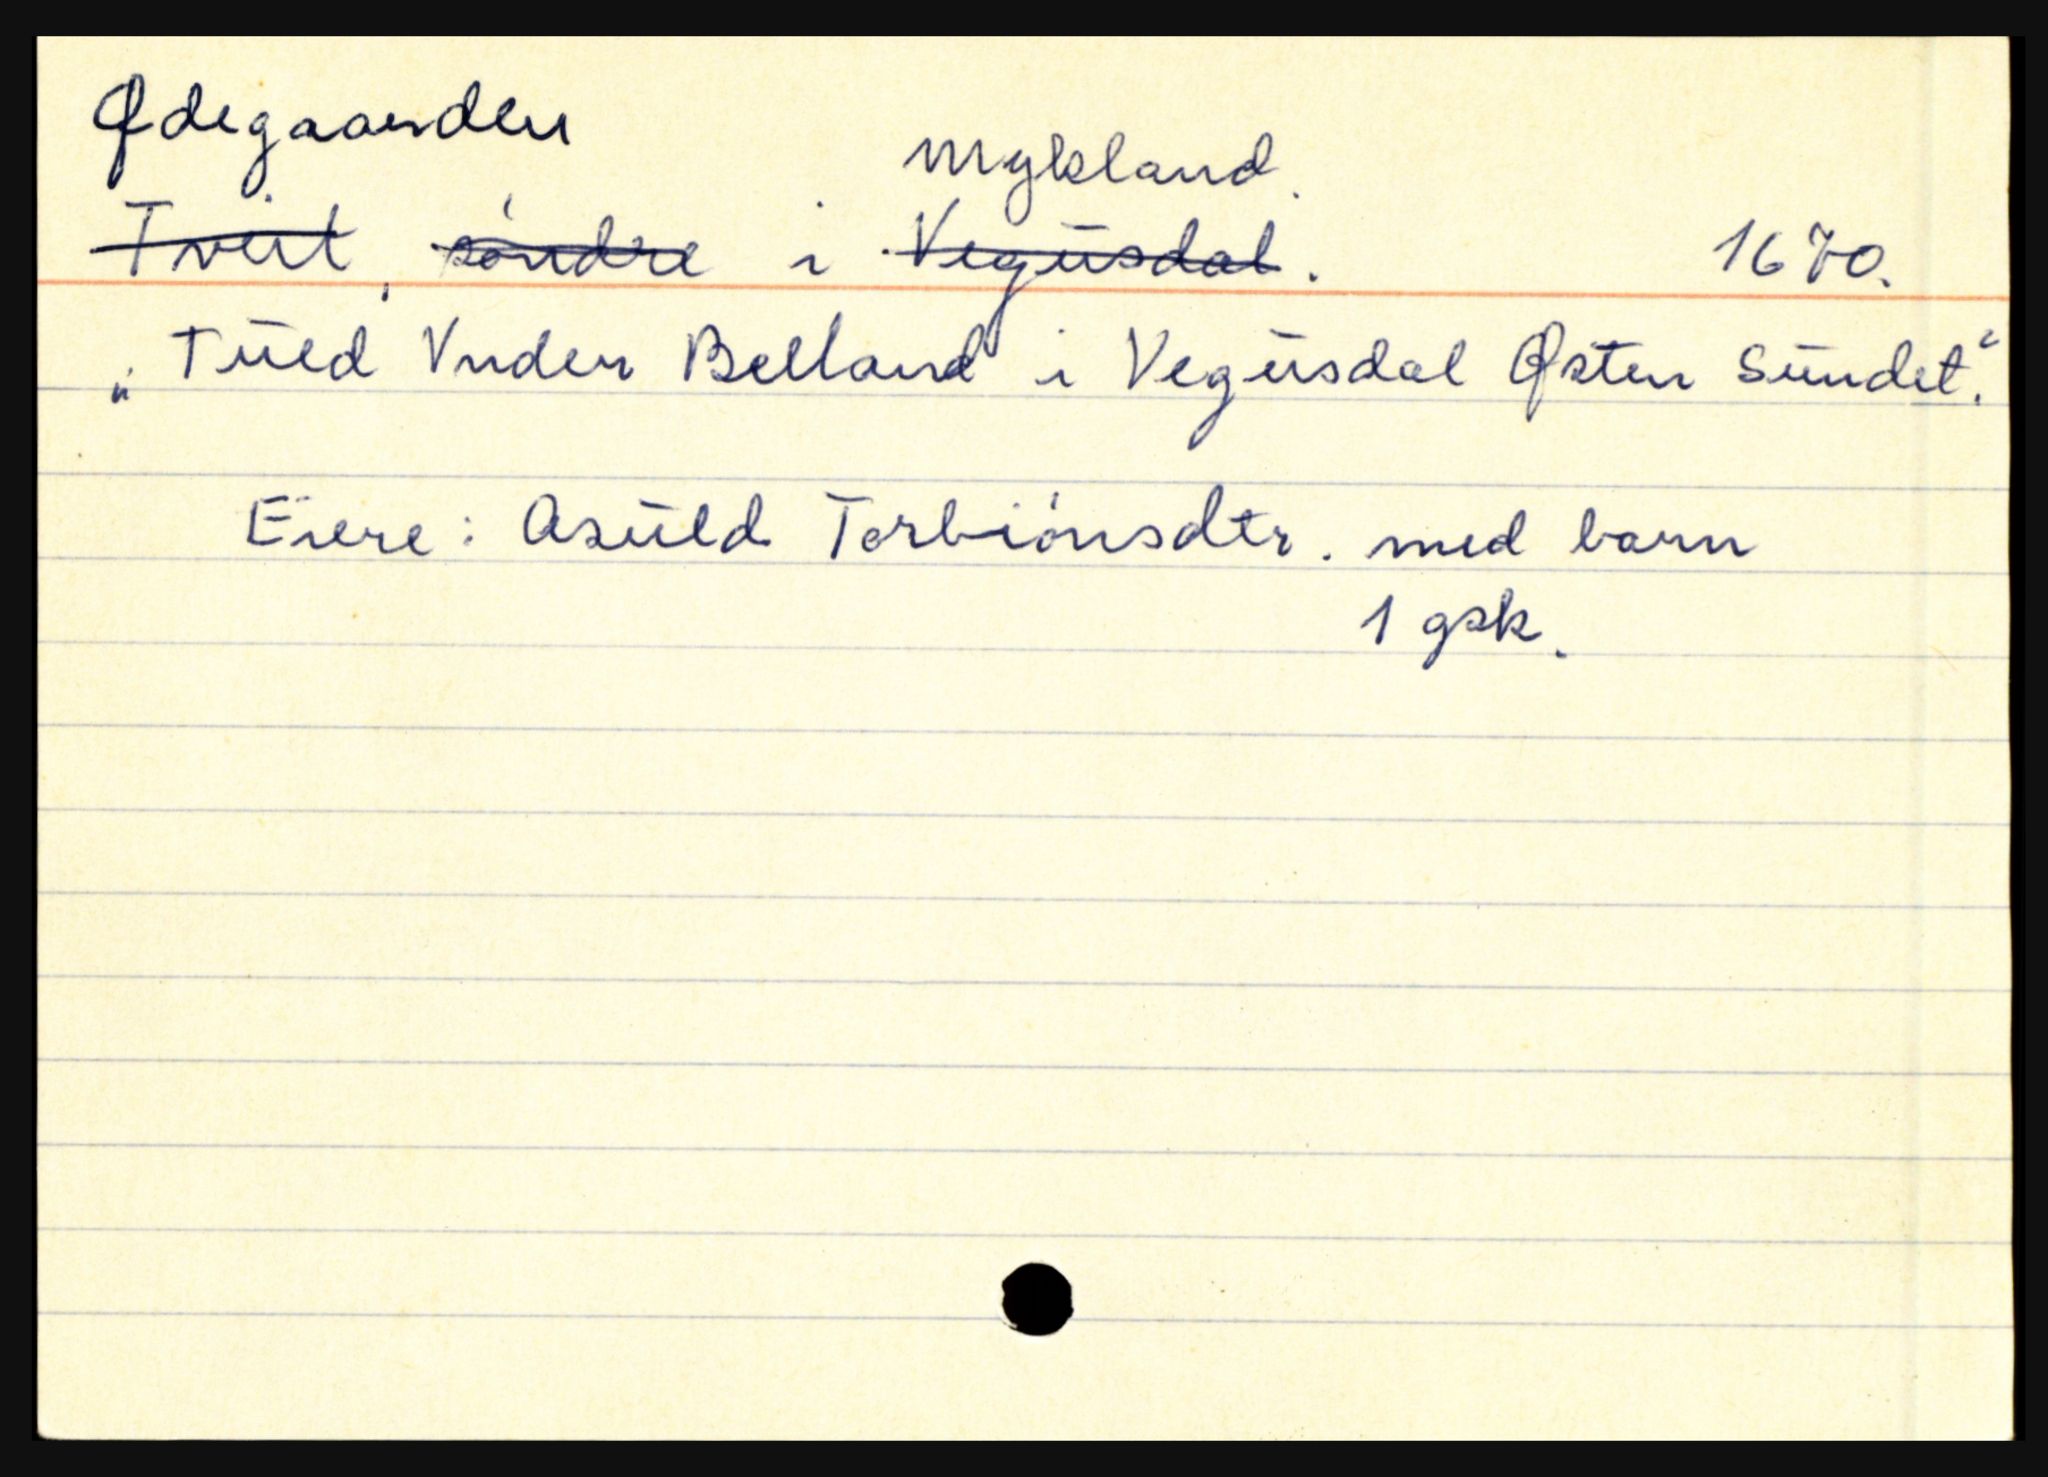 Ødegaarden
Mykland.
Tveit, söndre i Vegusdal. 1670.
„Tued Vnder Belland i Vegusdal Østen Sundet.“
Eiere: Asuld Torbiönsdtr. med barn
1 gsk.